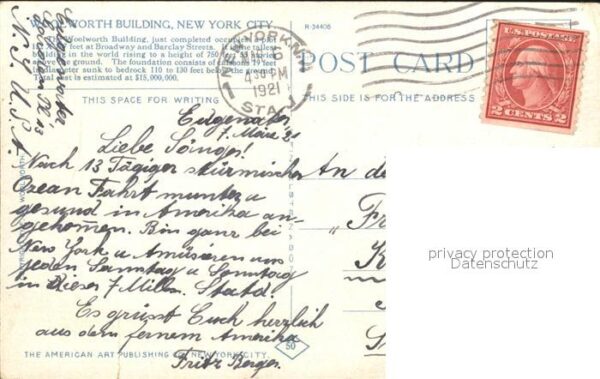 WORTH BUILDING, NEW YORK CITY
Woolworth Building, just completed occupies a plot
feet at Broadway and Barclay Streets.
building in the world rising to a height of 750 feet
above the ground. The foundation consists of
sunk to bedrock 110 to 130 feet below the
cost estimated at $15,000,000.
THIS SPACE FOR WRITING
R-34406
POST CARD
THIS SIDE IS FOR THE ADDRESS
NEW YORK N.Y.
4 30 PM
1921
STA.
U.S. POSTAGE
2 CENTS 2
Edgewater
7. März 21
Liebe Sänger!
Nach 13 Tägiger stürmischer
Ozean Fahrt munter u
gesund in Amerika an-
gekommen. Bin ganz bei
New York u Amüsieren uns
jeden Samstag u Sonntag
in dieser 7 Mill. Stadt.
Es grüsst Euch herzlich
aus dem fernem Amerika
Fritz Berger
Edgewater
N. J. U.S.A.
An de
„ Fr
K
THE AMERICAN ART PUBLISHING Co. NEW YORK CITY.
50
privacy protection
Datenschutz